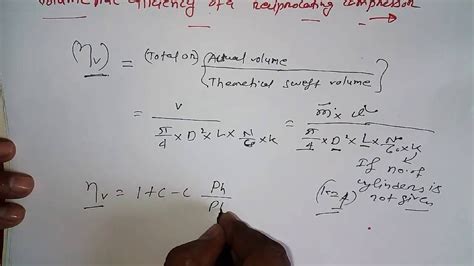 Volumetric efficiency of a reciprocating compressor →
(ηv) = (Total or) Actual volume / Theoretical swept volume
= V / (π/4 × D² × L × N/60 × K) = ṁ × / (π/4 × D² × L × N/60 × K)
If no. of
cylinders is
not given
(K = 1)
ηv = 1 + C - C Ph / Pl